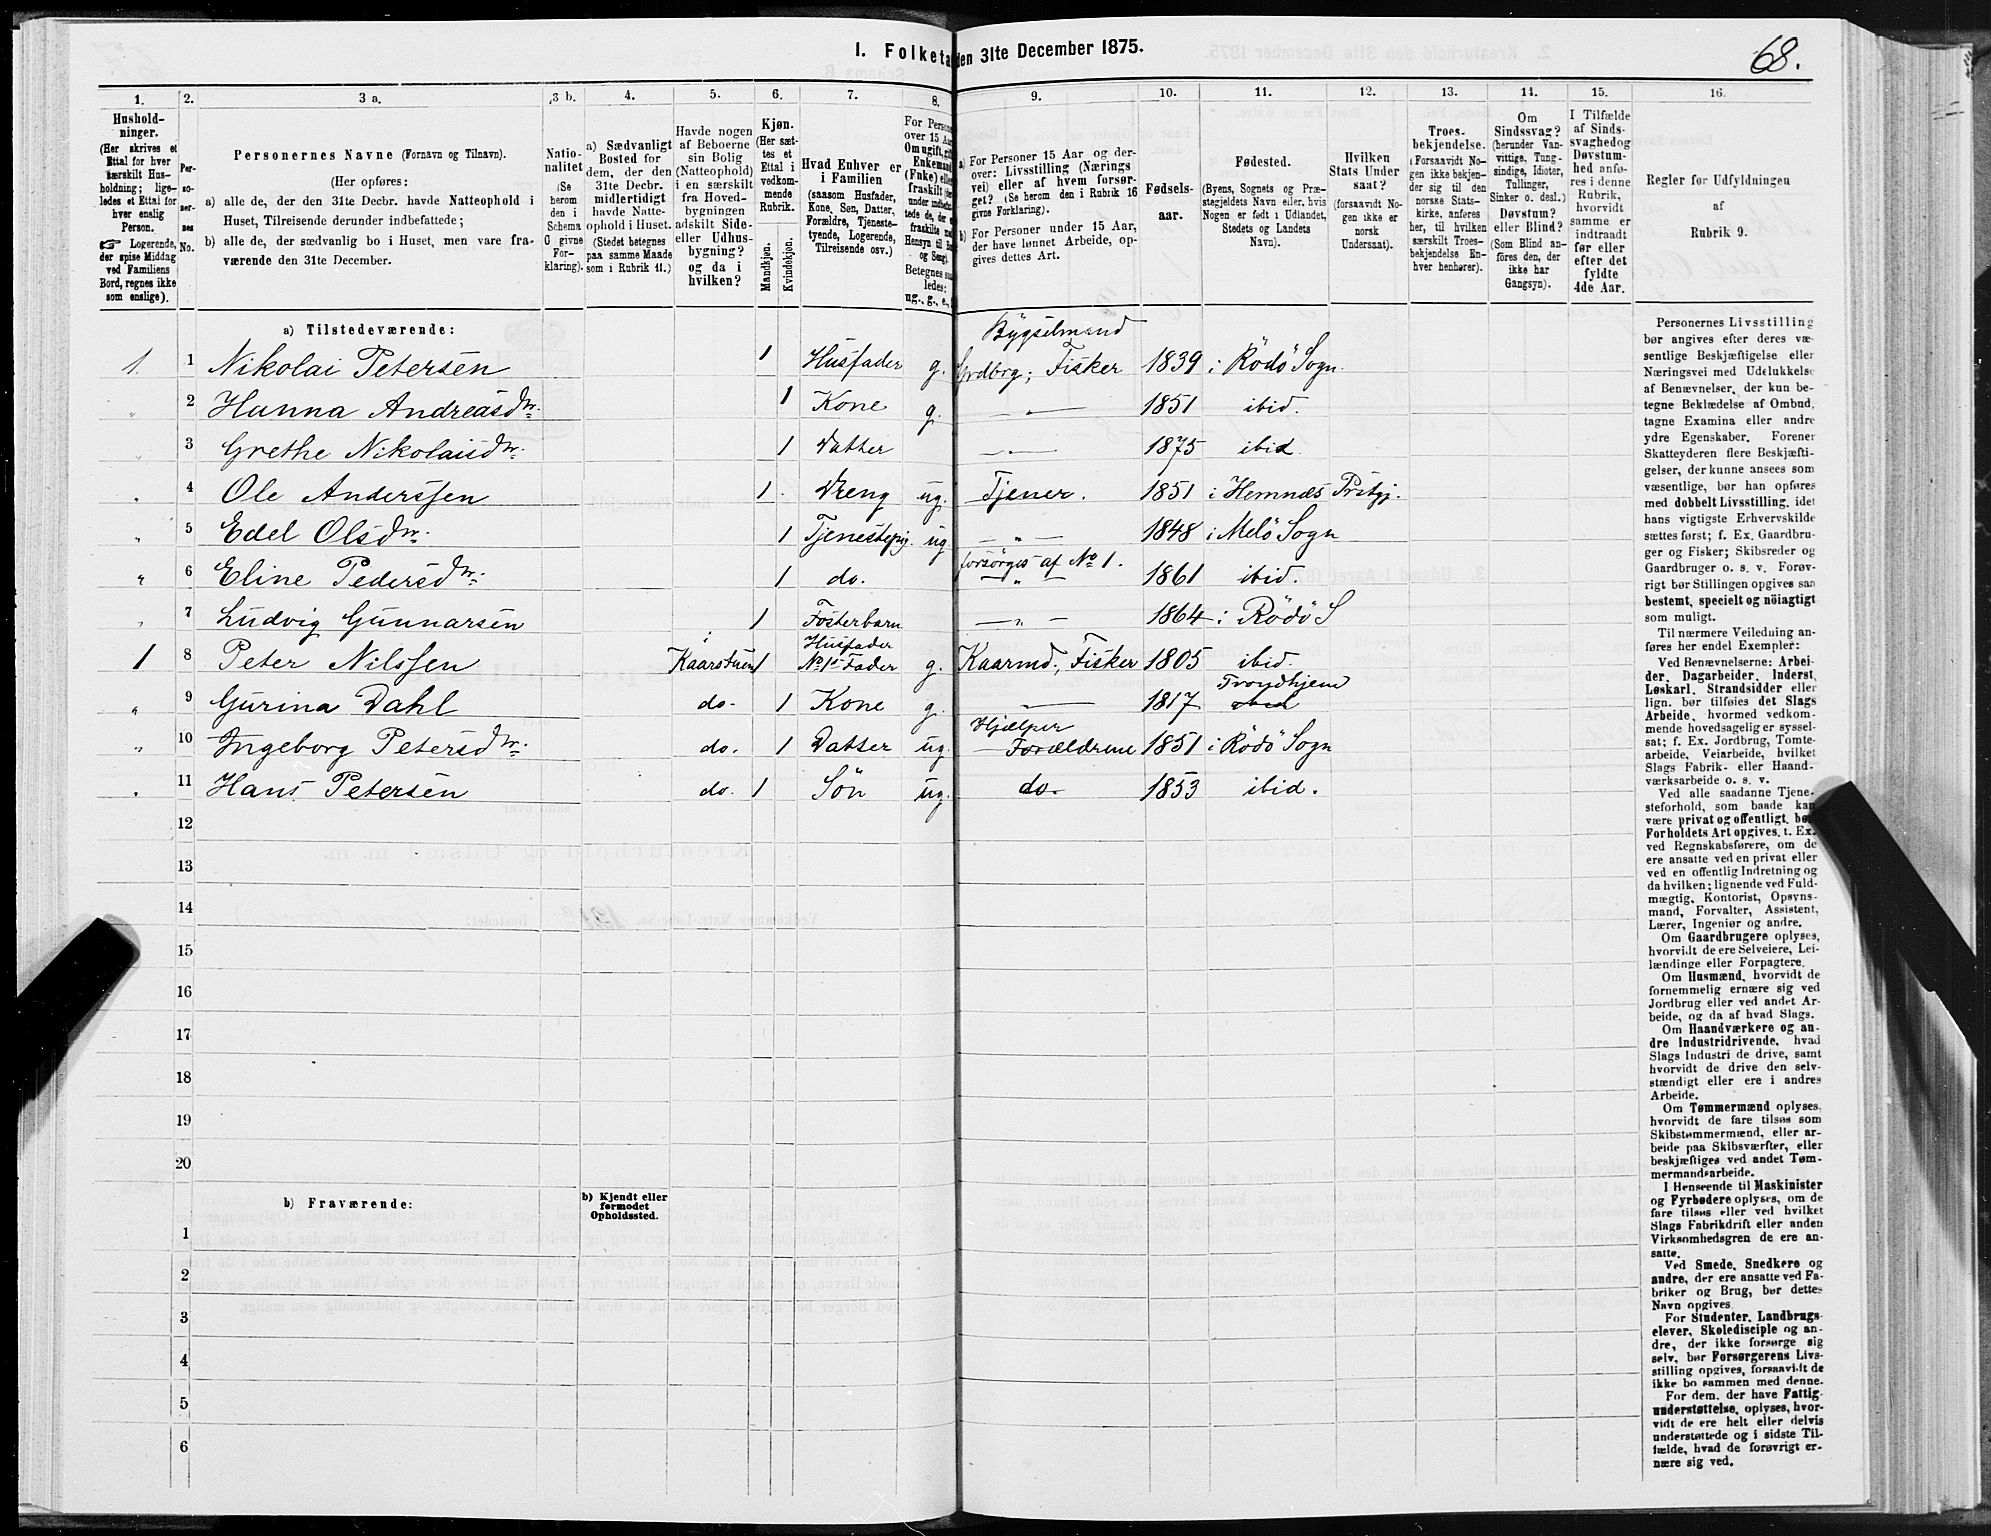 I. Folketæ
den 31te December 1875.
68.
1. 2. 3 a. 3 b. 4. 5. 6. 7. 8. 9. 10. 11. 12. 13. 14. 15. 16.
Hushold-
ninger.
(Her skrives et
Ettal for hver
særskilt Hus-
holdning; lige-
ledes et Ettal for
hver enslig
Person.
☞ Logerende,
der spise Middag
ved Familiens
Bord, regnes ikke
som enslige).
Per-
so-
ner-
nes
No.
Personernes Navne (Fornavn og Tilnavn).
(Her opføres:
a) alle de, der den 31te Decbr. havde Natteophold i
Huset, Tilreisende derunder indbefattede;
b) alle de, der sædvanlig bo i Huset, men vare fra-
værende den 31te December.
Natio-
nalitet
(Se
herom
den i
Schema
C givne
For-
klaring).
a) Sædvanligt
Bosted for
dem, der den
31te Decbr.
midlertidigt
havde Natte-
ophold i Huset.
(Stedet betegnes
paa samme Maade
som i Rubrik 11.)
Havde nogen
af Beboerne
sin Bolig
(Natteophold)
i en særskilt
fra Hoved-
bygningen
adskilt Side-
eller Udhus-
bygning?
og da i
hvilken?
Kjøn.
(Her sæt-
tes et
Ettal i
vedkom-
mende
Rubrik.
Mandkjøn.
Kvindekjøn.
Hvad Enhver er
i Familien
(saasom Husfader,
Kone, Søn, Datter,
Forældre, Tjeneste-
tyende, Logerende,
Tilreisende osv.)
For Persone
over 15 Aa
Om ugift, gift
Enkemand
(Enke) elle
fraskilt
Betegnes saa
ledes:
ug., g., e.,
a) For Personer 15 Aar og der-
over: Livsstilling (Nærings
vei) eller af hvem forsør-
get? (Se herom den i Rubrik 16
givne Forklaring).
b) For Personer under 15 Aar,
der have lønnet Arbeide, op-
gives dettes Art.
Fødsels-
aar.
Fødested.
(Byens, Sognets og Præ-
stegjeldets Navn eller, hvis
Nogen er født i Udlandet,
Stedets og Landets
Navn).
Hvilken
Stats Under
saat?
(forsaavidt No-
gen ikke er
norsk
Undersaat).
Troes-
bekjendelse.
(Forsaavidt No-
gen ikke bekjen-
der sig til den
norske Stats-
kirke, anføres
her, til hvilken
særskilt Troes-
bekjendelse En-
hver henhører).
Om
Sindssvag?
(herunder Van-
vittige, Tung-
sindige, Idioter,
Tullinger,
Sinker o. desl.)
Døvstum?
eller Blind?
(Som Blind an-
føres den, der
ikke har
Gangsyn).
I Tilfælde
af Sinds-
svaghed og
Døvstum-
hed anfø-
res i denne
Rubrik,
hvorvidt
samme er
indtraadt
før eller
efter det
fyldte
4de Aar.
Regler før Udfyldningen
af
Rubrik 9.
a) Tilstedeværende:
Bygselmand
1. 1 Nikolai Petersen 1 Husfader g. Grdbrg; Fisker 1839 i Rödö Sogn
" 2 Hanna Andreasdr. 1 Kone g. — " — 1851 ibid.
" 3 Grethe Nikolaisdr. 1 Datter — " — 1875 ibid
" 4 Ole Anderssen 1. Dreng ug. Tjener. 1851 i Hemnæs Prstgj.
" 5 Edel Olsdr. 1 Tjenestepig. ug — " — 1848 i Melö Sogn
forsörges af No 1.
" 6 Eline Pedersdr. 1 do. — " — 1861 ibid.
" 7 Ludvig Gunnarsen 1 Fosterbarn — " — 1864 i Rödö S
i Husfader
1 8 Peter Nilssen Kaarstuen 1 No 1s Fader g. Kaarmd.; Fisker 1805 ibid.
Trondhjem
" 9 Gurina Dahl do. 1 Kone g. — 1817 ibid
Hjælper
" 10 Ingeborg Petersdr. do. 1 Datter ug. Forældrene 1851 i Rödö Sogn
" 11 Hans Petersen do. 1 Sön ug. do. 1853 ibid.
12
13
14
15
16
17
18
19
20
b) Fraværende:
b) Kjendt eller
formodet
Opholdssted.
1
2
3
4
5
6
Personernes Livsstilling
bør angives efter deres væ-
sentlige Beskjæftigelse eller
Næringsvei med Udelukkelse
af Benævnelser, der kun be-
tegne Beklædelse af Ombud,
tagne Examina eller andre
ydre Egenskaber. Forener
Skatteyderen flere Beskjæfti-
gelser, der kunne ansees som
væsentlige, bør han opføres
med dobbelt Livsstilling, idet
hans vigtigste Erhvervskilde
sættes først; f. Ex. Gaardbru-
ger og Fisker; Skibsreder og
Gaardbruger o. s. v. Forøv-
rigt bør Stillingen opgives saa
bestemt, specielt og nöiagtigt
som muligt.
Til nærmere Veiledning an-
føres her endel Exempler:
Ved Benævnelserne: Arbei-
der, Dagarbeider, Inderst,
Løskarl, Strandsidder eller
lign. bør tilføies det Slags
Arbeide, hvormed vedkom-
mende hovedsagelig er syssel-
sat; f. Ex. Jordbrug, Tomte-
arbeide, Veiarbeide, hvilket
Slags Fabrik- eller Haand-
værksarbeide o. s. v.
Ved alle saadanne Tjene-
steforhold, som baade kan
være privat og offentligt, bør
Forholdets Art opgives, t. Ex.
ved Regnskabsførere, om de
ere ansatte ved en privat eller
ved en offentlig Indretning og
da hvilken; lignende ved Fuld-
mægtig, Kontorist, Opsyns-
mand, Forvalter, Assistent,
Lærer, Ingeniør og andre.
Om Gaardbrugere oplyses,
hvorvidt de ere Selveiere, Lei-
lændinge eller Forpagtere.
Om Husmænd, hvorvidt de
fornemmelig ernære sig ved
Jordbrug eller ved andet Ar-
beide, og da af hvad Slags.
Om Haandværkere og an-
dre Industridrivende, hvad
Slags Industri de drive, samt
hvorvidt de drive den selv-
stændigt eller ere i andres
Arbeide.
Om Tømmermænd oplyses,
hvorvidt de fare tilsøs som
Skibstømmermænd, eller ar-
beide paa Skibsværfter, eller
beskjæftiges ved andet Tøm-
mermandsarbeide.
I Henseende til Maskinister
og Fyrbødere oplyses, om de
fare tilsøs eller ved hvilket
Slags Fabrikdrift eller anden
Virksomhedsgren de ere an-
satte.
Ved Smede, Snedkere og
andre, der ere ansatte ved Fa-
briker og Brug, bør dettes
Navn opgives.
For Studenter, Landbrugs-
elever, Skoledisciple og an-
dre, der ikke forsørge sig
selv, bør Forsørgerens Livs-
stilling opgives, forsaavidt de
ikke bo sammen med denne.
For dem, der have Fattig-
understøttelse, oplyses, hvor-
vidt de ere helt eller delvis
understøttede og i sidste Til-
fælde, hvad de forøvrigt er-
nære sig ved.